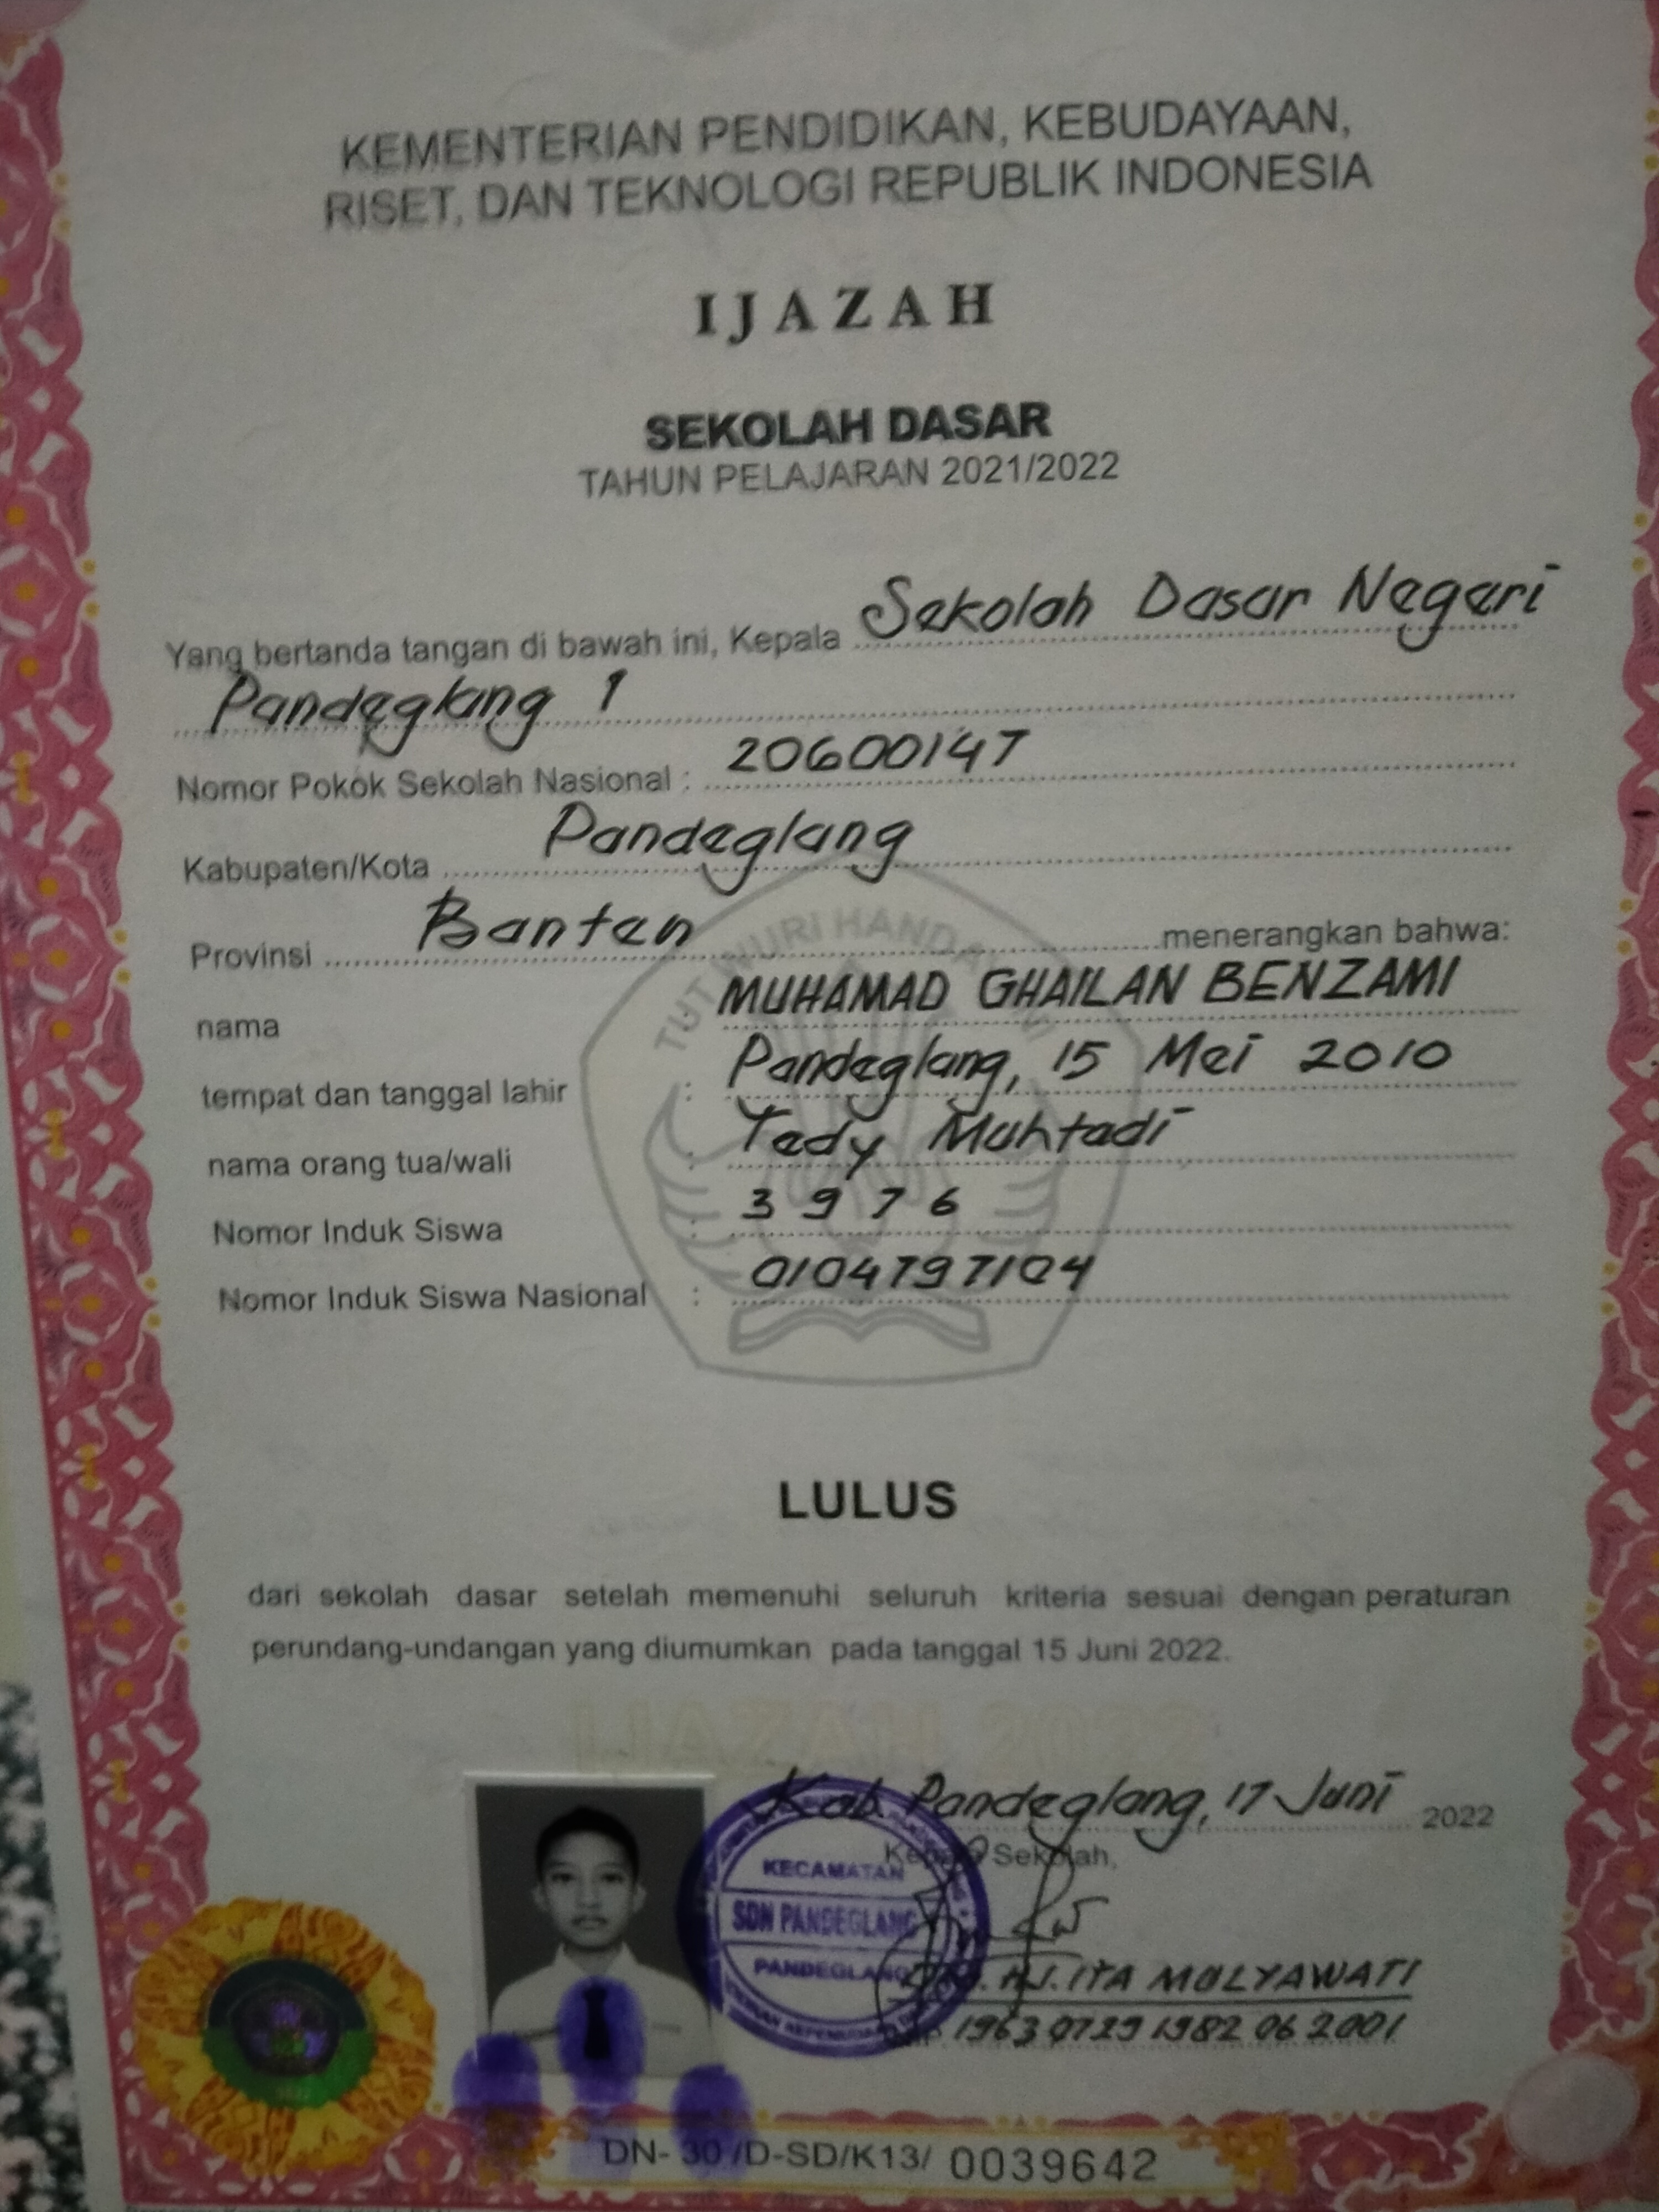 KEMENTERIAN PENDIDIKAN, KEBUDAYAAN,
RISET, DAN TEKNOLOGI REPUBLIK INDONESIA
IJAZAH
SEKOLAH DASAR
TAHUN PELAJARAN 2021/2022
Yang bertanda tangan di bawah ini, Kepala Sekolah Dasar Negeri
Pandeglang 1
Nomor Pokok Sekolah Nasional : 20600147
Kabupaten/Kota Pandeglang
Provinsi Banten menerangkan bahwa:
TUT WURI HANDAYANI
nama : MUHAMAD GHAILAN BENZAMI
tempat dan tanggal lahir : Pandeglang, 15 Mei 2010
nama orang tua/wali : Tedy Muhtadi
Nomor Induk Siswa : 3976
Nomor Induk Siswa Nasional : 0104797104
LULUS
dari sekolah dasar setelah memenuhi seluruh kriteria sesuai dengan peraturan
perundang-undangan yang diumumkan pada tanggal 15 Juni 2022.
Kab. Pandeglang, 17 Juni 2022
Kepala Sekolah,
KECAMATAN
SDN PANDEGLANG
PANDEGLANG
HJ. ITA MULYAWATI
19630729 198206 2001
DN- 30 /D-SD/K13/ 0039642